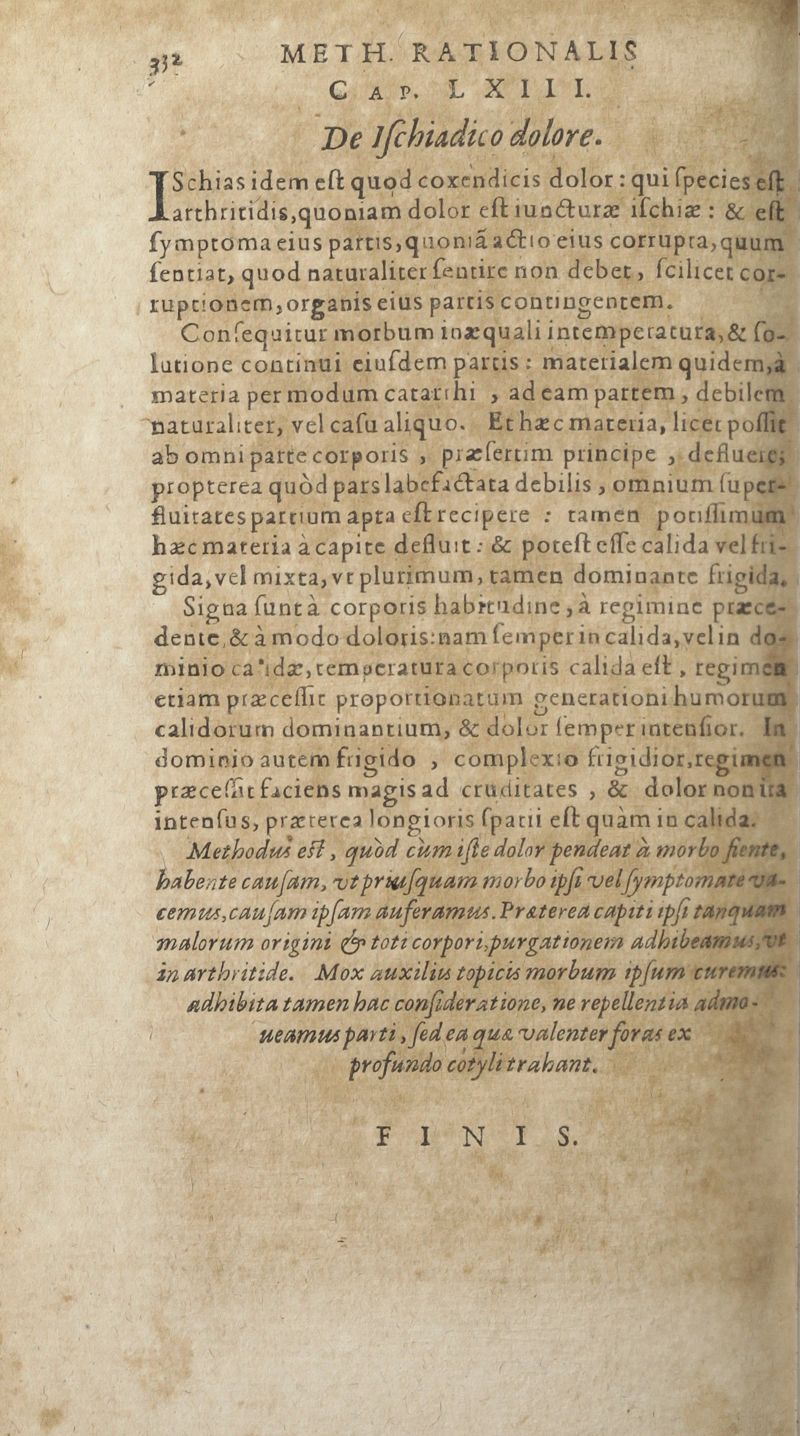 332 METH. RATIONALIS
CAP. LXIII.
De Iſchiadico dolore.
ISchias idem eſt quod coxendicis dolor : qui ſpecies eſt
arthritidis,quoniam dolor eſt iuncturæ iſchiæ : & eſt
ſymptoma eius partis,quoniā actio eius corrupta,quum
ſentiat, quod naturaliter ſentire non debet, ſcilicet cor-
ruptionem,organis eius partis contingentem.
Conſequitur morbum inæquali intemperatura,& ſo-
lutione continui eiuſdem partis : materialem quidem,à
materia per modum catarrhi , ad eam partem , debilem
naturaliter, vel caſu aliquo. Et hæc materia, licet poſſit
ab omni parte corporis , præſertim principe , defluere;
propterea quòd pars labefactata debilis , omnium ſuper-
fluitates partium apta eſt recipere : tamen potiſſimum
hæc materia à capite defluit : & poteſt eſſe calida vel fri-
gida,vel mixta,vt plurimum, tamen dominante frigida.
Signa ſunt à corporis habitudine ,à regimine præce-
dente,& à modo doloris:nam ſemper in calida,vel in do-
minio calidæ,temperatura corporis calida eſt , regimen
etiam præceſſit proportionatum generationi humorum
calidorum dominantium, & dolor ſemper intenſior. In
dominio autem frigido , complexio frigidior,regimen
præceſſit faciens magis ad cruditates , & dolor non ita
intenſus, præterea longioris ſpatii eſt quàm in calida.
Methodus eſt , quòd cùm iſte dolor pendeat à morbo fiente,
habente cauſam, vt priuſquam morbo ipſi vel ſymptomate va-
cemus,cauſam ipſam auferamus. Præterea capiti ipſi tanquam
malorum origini & toti corpori,purgationem adhibeamus,vt
in arthritide. Mox auxiliis topicis morbum ipſum curemus:
adhibita tamen hac conſideratione, ne repellentia admo-
ueamus parti , ſed ea quæ valenter foras ex
profundo cotyli trahant.
FINIS.